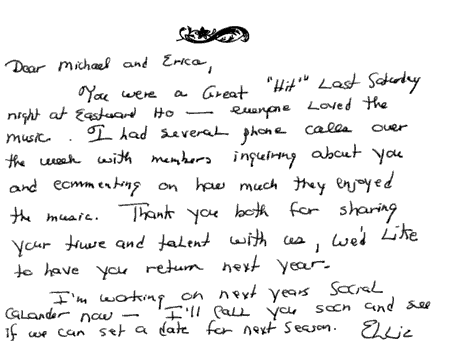 Dear Michael and Erica,
You were a Great "Hit" Last Saturday
night at Eastward Ho — everyone Loved the
music. I had several phone calls over
the week with members inquiring about you
and commenting on how much they enjoyed
the music. Thank you both for sharing
your time and talent with us, we'd Like
to have you return next year.
I'm working on next years Social
Calander now — I'll call you soon and see
if we can set a date for next Season. Ellie